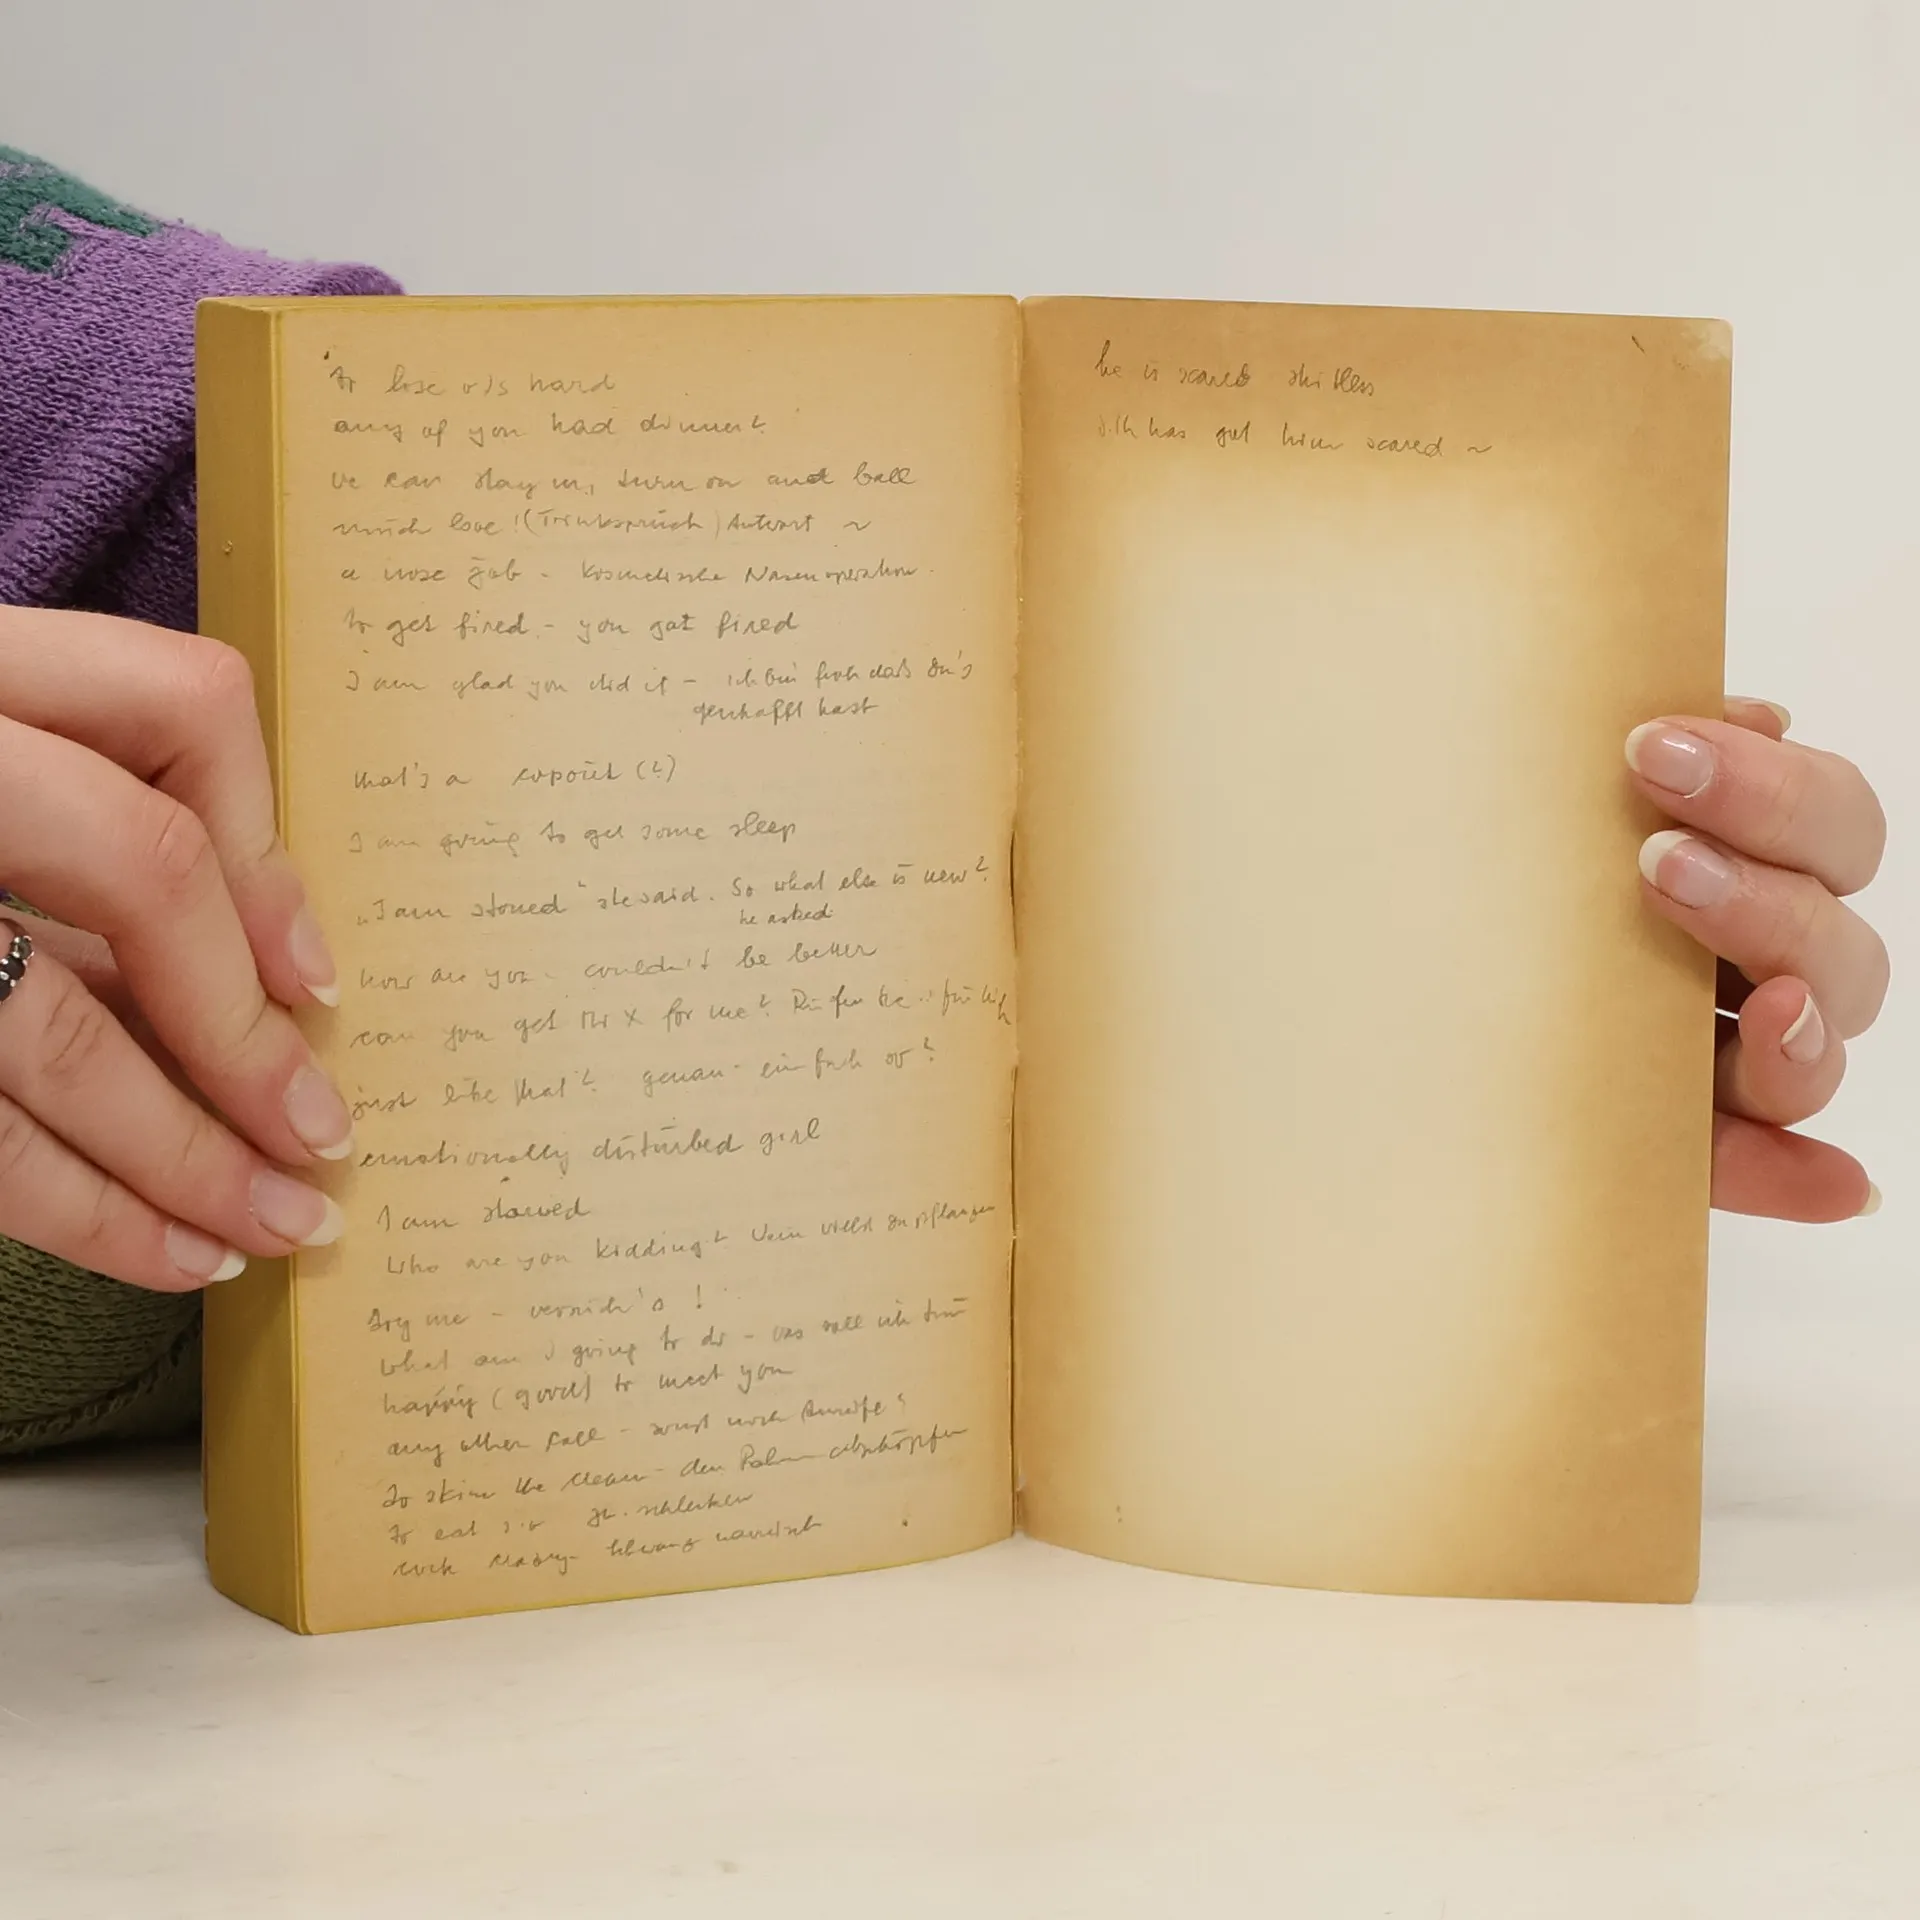 to lose o/s hard
any of you had dinner?
we can stay in, turn on and ball
much love! (Trinkspruch) Antwort ~
a nose job - kosmetische Nasenoperation.
to get fired - you got fired
I am glad you did it - ich bin froh daß du's
geschafft hast
that's a copout (?)
I am going to get some sleep
"I am stoned" she said. So what else is new?
he asked
how are you - couldn't be better
can you get Mr X for me? Rufen Sie .. für mich
just like that? genau - einfach so?
emotionally disturbed girl
I am starved
Who are you kidding? Wem willst du pflanzen
try me - versuch's!
what am I going to do - was soll ich tun
happy (good) to meet you
any other call - sonst noch Anrufe?
to skim the cream - den Rahm abschöpfen
to eat schlecken
cock crazy - schwanz narrisch
he is scared shitless
sth has got him scared ~